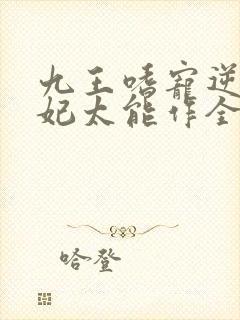 九王嗜宠逆
妃太能作全
哈登